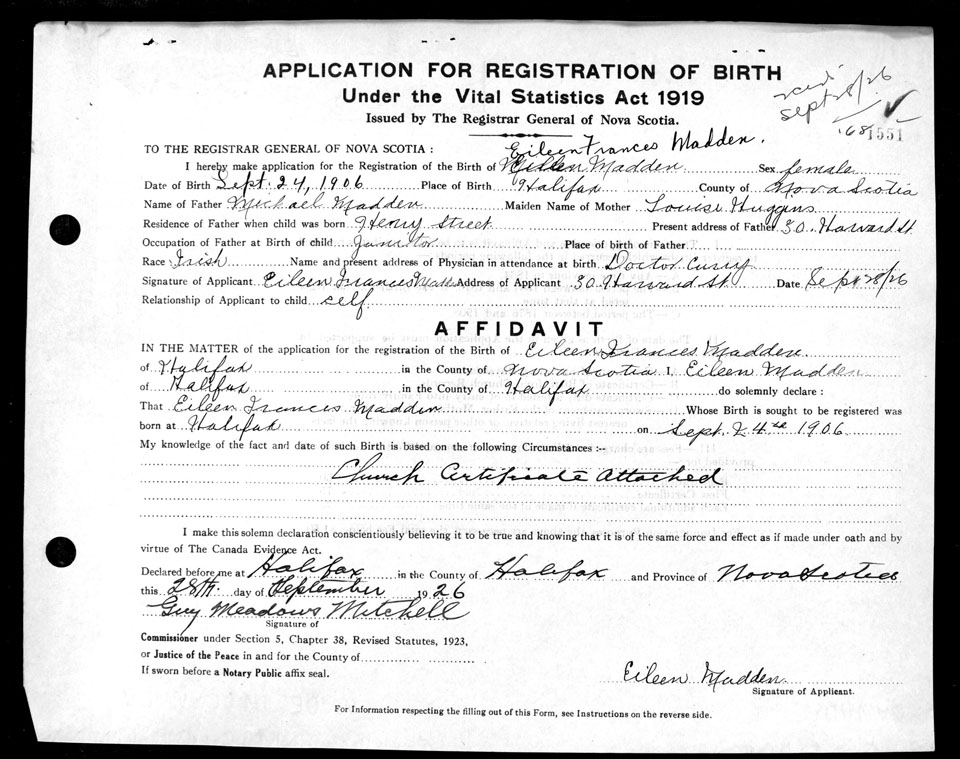 APPLICATION FOR REGISTRATION OF BIRTH
Under the Vital Statistics Act 1919
Issued by The Registrar General of Nova Scotia.
Sept 28/26
168 1551
Eileen Frances Madden.
TO THE REGISTRAR GENERAL OF NOVA SCOTIA :
I hereby make application for the Registration of the Birth of Madden Sex female
Date of Birth Sept. 24, 1906 Place of Birth Halifax County of Nova Scotia
Name of Father Michael Madden Maiden Name of Mother Louise Huggins
Residence of Father when child was born Henry Street Present address of Father 30 Harvard St
Occupation of Father at Birth of child Janitor Place of birth of Father
Race Irish Name and present address of Physician in attendance at birth Doctor Curry
Signature of Applicant Eileen Frances Address of Applicant 30 Harvard St. Date Sept 28/26
Relationship of Applicant to child self
AFFIDAVIT
IN THE MATTER of the application for the registration of the Birth of Eileen Frances Madden
of Halifax in the County of Nova Scotia I, Eileen Madden
of Halifax in the County of Halifax do solemnly declare :
That Eileen Francis Madden Whose Birth is sought to be registered was
born at Halifax on Sept. 24th 1906
My knowledge of the fact and date of such Birth is based on the following Circumstances :-
Church Certificate Attached
I make this solemn declaration conscientiously believing it to be true and knowing that it is of the same force and effect as if made under oath and by
virtue of The Canada Evidence Act.
Declared before me at Halifax in the County of Halifax and Province of Nova Scotia
this 28th. day of September 1926
Guy Meadows Mitchell
Signature of
Commissioner under Section 5, Chapter 38, Revised Statutes, 1923,
or Justice of the Peace in and for the County of
If sworn before a Notary Public affix seal.
Eileen Madden.
Signature of Applicant.
For Information respecting the filling out of this Form, see Instructions on the reverse side.